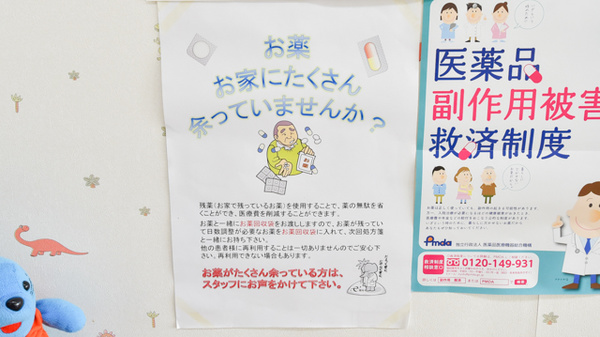 お薬
お家にたくさん
余っていませんか？
お薬
残薬(お家で残っているお薬)を使用することで、薬の無駄を省
くことができ、医療費を削減することができます。
お薬と一緒にお薬回収袋をお渡ししますので、お薬が残ってい
て日数調整が必要なお薬をお薬回収袋に入れて、次回処方箋
と一緒にお持ち下さい。
他の患者様に再利用することは一切ありませんのでご安心下
さい。再利用できない場合もあります。
お薬がたくさん余っている方は、
スタッフにお声をかけて下さい。
医薬品
副作用被害
救済制度
Pmda
独立行政法人 医薬品医療機器総合機構
救済制度
相談窓口
0120-149-931
PMDA
検索